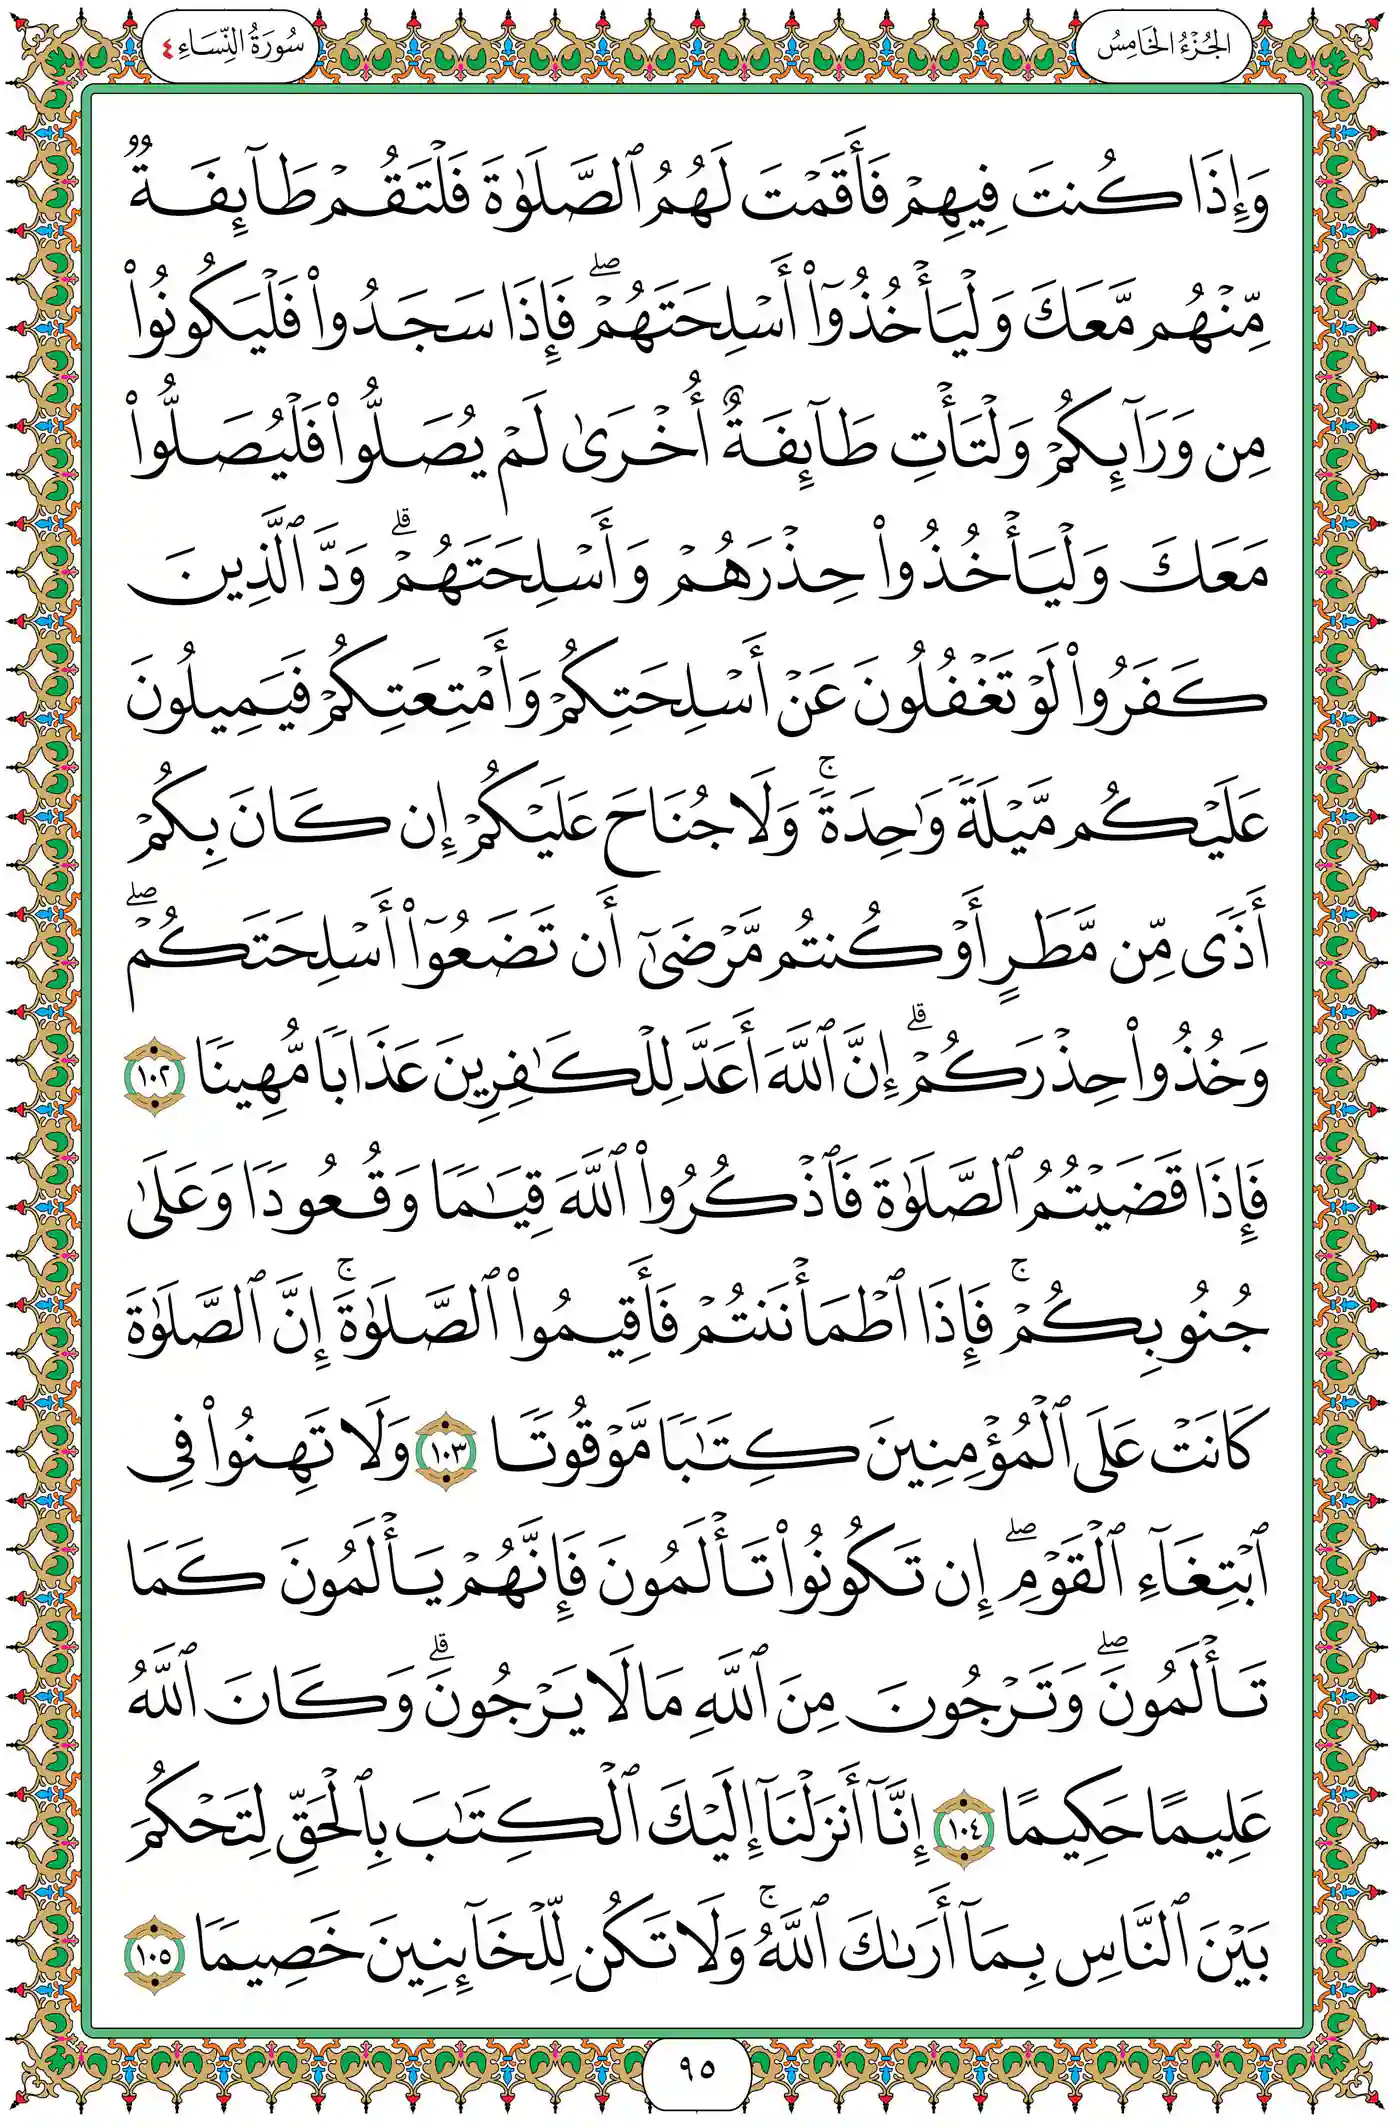 الجُزْءُ الخَامِسُ
سُورَةُ النِّسَاءِ ٤
وَإِذَا كُنتَ فِيهِمْ فَأَقَمْتَ لَهُمُ ٱلصَّلَوٰةَ فَلْتَقُمْ طَآئِفَةٌ
مِّنْهُم مَّعَكَ وَلْيَأْخُذُوٓا۟ أَسْلِحَتَهُمْۖ فَإِذَا سَجَدُوا۟ فَلْيَكُونُوا۟
مِن وَرَآئِكُمْ وَلْتَأْتِ طَآئِفَةٌ أُخْرَىٰ لَمْ يُصَلُّوا۟ فَلْيُصَلُّوا۟
مَعَكَ وَلْيَأْخُذُوا۟ حِذْرَهُمْ وَأَسْلِحَتَهُمْۗ وَدَّ ٱلَّذِينَ
كَفَرُوا۟ لَوْ تَغْفُلُونَ عَنْ أَسْلِحَتِكُمْ وَأَمْتِعَتِكُمْ فَيَمِيلُونَ
عَلَيْكُم مَّيْلَةً وَٰحِدَةًۚ وَلَا جُنَاحَ عَلَيْكُمْ إِن كَانَ بِكُمْ
أَذًى مِّن مَّطَرٍ أَوْ كُنتُم مَّرْضَىٰٓ أَن تَضَعُوٓا۟ أَسْلِحَتَكُمْۖ
وَخُذُوا۟ حِذْرَكُمْۗ إِنَّ ٱللَّهَ أَعَدَّ لِلْكَٰفِرِينَ عَذَابًا مُّهِينًا ١٠٢
فَإِذَا قَضَيْتُمُ ٱلصَّلَوٰةَ فَٱذْكُرُوا۟ ٱللَّهَ قِيَٰمًا وَقُعُودًا وَعَلَىٰ
جُنُوبِكُمْۚ فَإِذَا ٱطْمَأْنَنتُمْ فَأَقِيمُوا۟ ٱلصَّلَوٰةَۚ إِنَّ ٱلصَّلَوٰةَ
كَانَتْ عَلَى ٱلْمُؤْمِنِينَ كِتَٰبًا مَّوْقُوتًا ١٠٣ وَلَا تَهِنُوا۟ فِى
ٱبْتِغَآءِ ٱلْقَوْمِۖ إِن تَكُونُوا۟ تَأْلَمُونَ فَإِنَّهُمْ يَأْلَمُونَ كَمَا
تَأْلَمُونَۖ وَتَرْجُونَ مِنَ ٱللَّهِ مَا لَا يَرْجُونَۗ وَكَانَ ٱللَّهُ
عَلِيمًا حَكِيمًا ١٠٤ إِنَّآ أَنزَلْنَآ إِلَيْكَ ٱلْكِتَٰبَ بِٱلْحَقِّ لِتَحْكُمَ
بَيْنَ ٱلنَّاسِ بِمَآ أَرَىٰكَ ٱللَّهُۚ وَلَا تَكُن لِّلْخَآئِنِينَ خَصِيمًا ١٠٥
٩٥